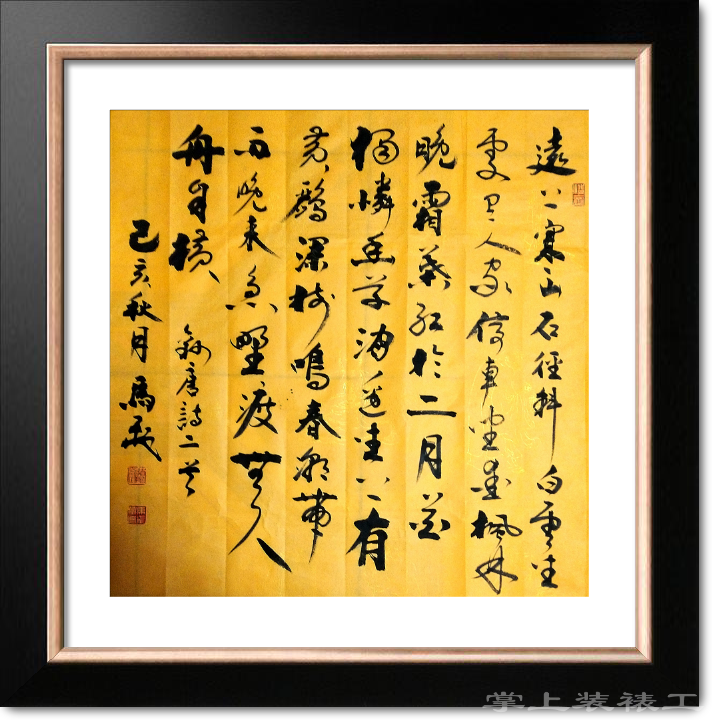 遠上寒山石徑斜白雲生
處人家停車坐愛楓林
晚霜葉紅於二月花
獨憐幽草澗邊生上有
黃鸝深樹鳴春潮帶
雨晚來急野渡無人
舟自橫
錄唐詩二首
己亥秋月馬
掌上装裱工